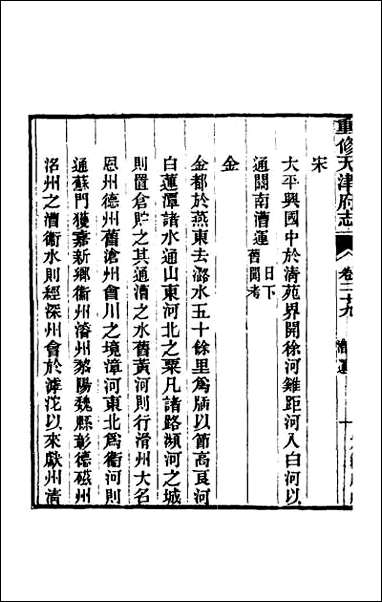 重修天津府志
卷二十九
漕運
宋
太平興國中於清苑界開徐河雞距河入白河以
通關南漕運日下
舊聞考
金
金都於燕東去潞水五十餘里為牐以節高良河
白蓮潭諸水通山東河北之粟凡諸路瀕河之城
則置倉貯之其通漕之水舊黃河則行滑州大名
恩州德州舊滄州會川之境漳河東北為衞河則
通蘇門獲嘉新鄉衞州濬州黎陽魏縣彰德磁州
洺州之漕衞水則經深州會於滹沱以來獻州清